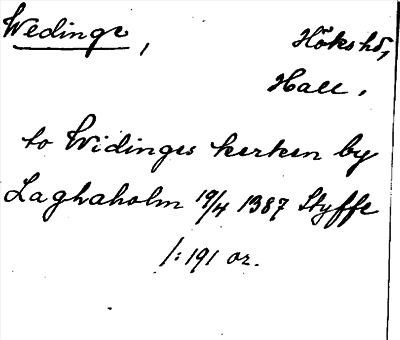 Wedinge, Hökshd,
Hall.
to Widinges kerken by
Laghaholm 19/4 1387 Styffe
1:191 or.